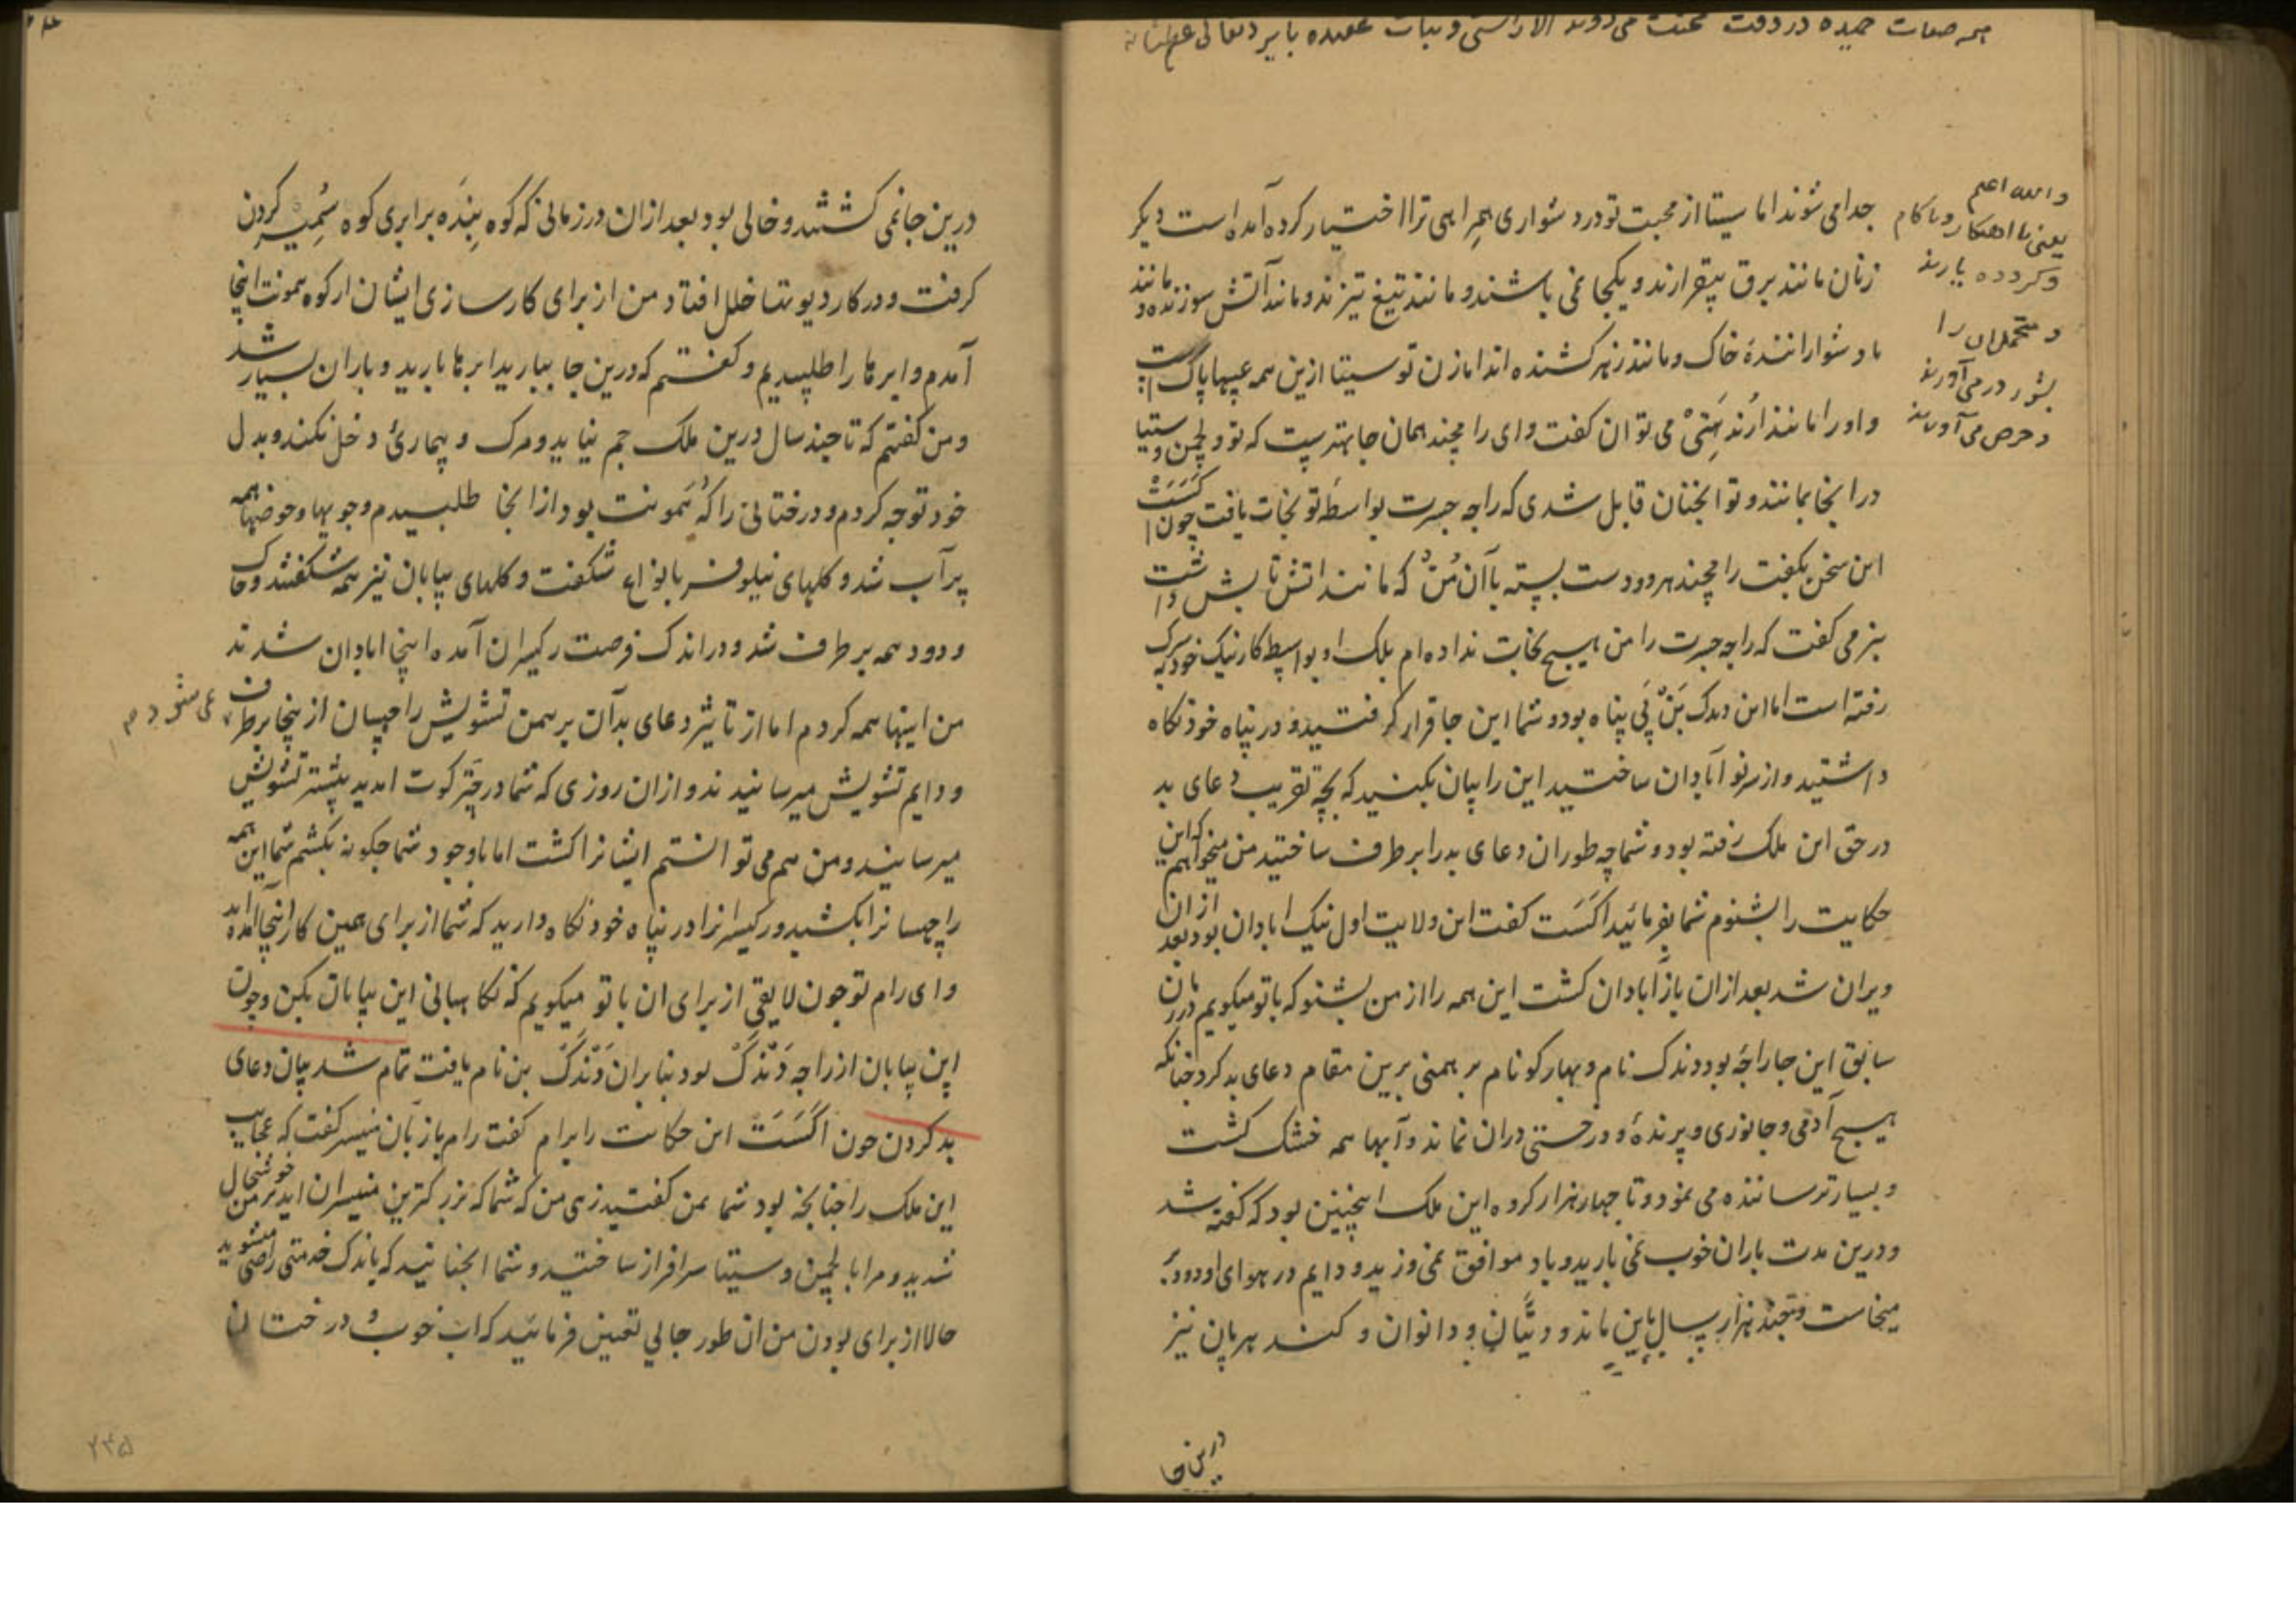 همه صفات حمیده در وقت محنت می‌روند الا راستی و ثبات عقیده با پیر
جدا می شوند اما سیتا از محبت تو درد شواری همراهی ترا اختیار کرده آمده است دیگر
زنان مانند برق بیقرارند و یکجا نمی باشند و مانند تیغ تیزند و مانند آتش سوزنده و مانند
باد شوارانندهٔ خاک و مانند زهر کشنده اند اما زن تو سیتا ازین همه عیبها پاک است
و او را مانند ارُندهتیْ می توان گفت و ای رامچند همان جا بهتریست که تو و لچمن و سیتا
در انجا بمانند و تو انچنان قابل شدی که راجه جسرت بواسطهٔ تو نجات یافت چون اگست
این سخن بگفت رامچند هر دو دست بسته با آن مُن که مانند اتش تابش داشت
بنرمی گفت که راجه جسرت را من هیچ نجات نداده ام بلک او بواسطه کار نیک خود بسرگ
رفته است اما این دندک بَنْ بی پناه بود و شما این جا قرار گرفتید و در پناه خود نگاه
داشتید و از سر نو آبادان ساختید این را بیان بکنید که بچه تقریب دعای بد
در حق این ملک رفته بود و شما چه طور ان دعای بد را برطرف ساختید من میخواهم که این
حکایت را بشنوم شما بفرمائید اگَسَت گفت این ولایت اول نیک ابادان بود بعد از ان
ویران شد بعد ازان باز آبادان گشت این همه را از من بشنو که با تو میگویم در زمان
سابق این جا راجهٔ بود دندک نام و بهارکو نام برهمنی برین مقام دعای بد کرد چنانکه
هیچ آدمی و جانوری و پرندهٔ و درختی دران نماند و آبها همه خشک گشت
و بسیار ترساننده می نمود و تا چهار هزار کروه این ملک اینچنین بود که گفته شد
و درین مدت باران خوب نمی بارید و باد موافق نمی وزید و دایم در هوای او دود
میخاست و چند هزار سال باین ماند و دیتّان و دانوان و کندهربان نیز
درین جا
والله اعلم
و متحملان را
بشور در می آورند
و حرص می آورند
درین جا نمی گشتند و خالی بود بعد ازان در زمانی که کوه بِنِدَه برابری کوه سُمِیر کردن
گرفت و در کار دیوتتها خلل افتاد من از برای کارسازی ایشان از کوه هموَنت اینجا
آمدم و ابرها را طلبیدیم و گفتم که درین جا ببارید ابرها بارید و باران بسیار شد
و من گفتم که تا چند سال درین ملک جم نیاید و مرگ و بیماریٔ دخل نکند و بدل
خود توجه کردم و درختانی را که هموَنت بود از انجا طلبیدم و جویها و حوضها همه
پر آب شد و گلهای نیلوفر بانواع شکفت و گلهای بیابان نیز همه شکفتند و خاک
و دود همه برطرف شد و در اندک فرصت رکیسران آمده اینجا ابادان شدند
من اینها همه کردم اما از تاثیر دعای بد آن برهمن تشویش راچهسان از ینجا برطرف
نمی شود
و دایم تشویش میرسانیدند و ازان روزی که شما در چترکوت امدید بیشتر تشویش
میرسانید و من هم می توانستم ایشانرا کشت اما باوجود شما چگونه بکشم شما این همه
راچهسانرا بکشید و رکیسرانرا در پناه خود نگاه دارید که شما از برای همین کار اینجا آمده اید
و ای رام تو چون لایقی از برای ان با تو میگویم که نگاهبانی این بیابان بکن و چون
این بیابان از راجه دَنْدَکْ بود بنابران دَنْدَکْ بن نام یافت تمام شد بیان دعای
بد کردن چون اگَسَتْ این حکایت را برام گفت رام باز بآن منیسر گفت که عجایب
این ملک را چنانچه بود شما بمن گفتید زهی من که شما که بزرگترین منیسران اید بر من خوشحال
شدید و مرا با لچمن و سیتا سرافراز ساختید و شما انچنانید که باندک خدمتی راضی میشوید
حالا از برای بودن من ان طور جائی تعین فرمائید که اب خوب و درختان
۲۴۵